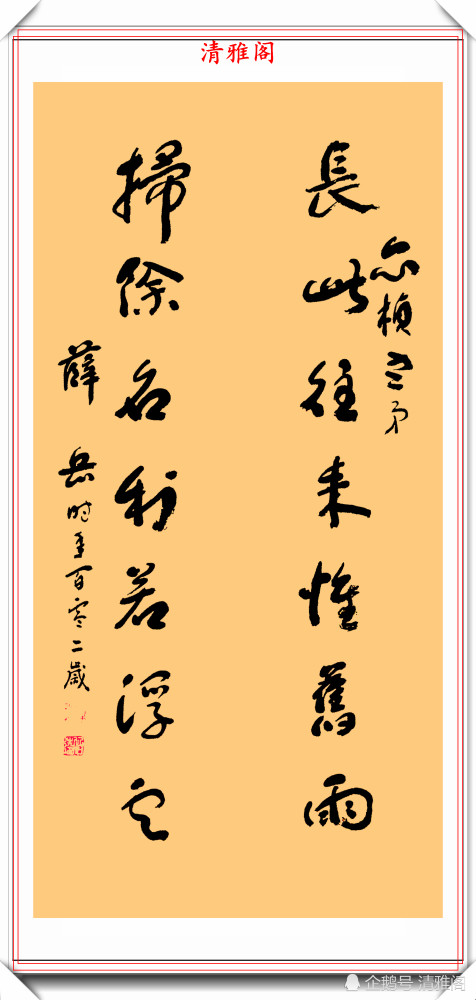 清雅阁
長此往来惟舊雨
掃除名利若浮雲
薛岳時年百零二歲
企鹅号 清雅阁